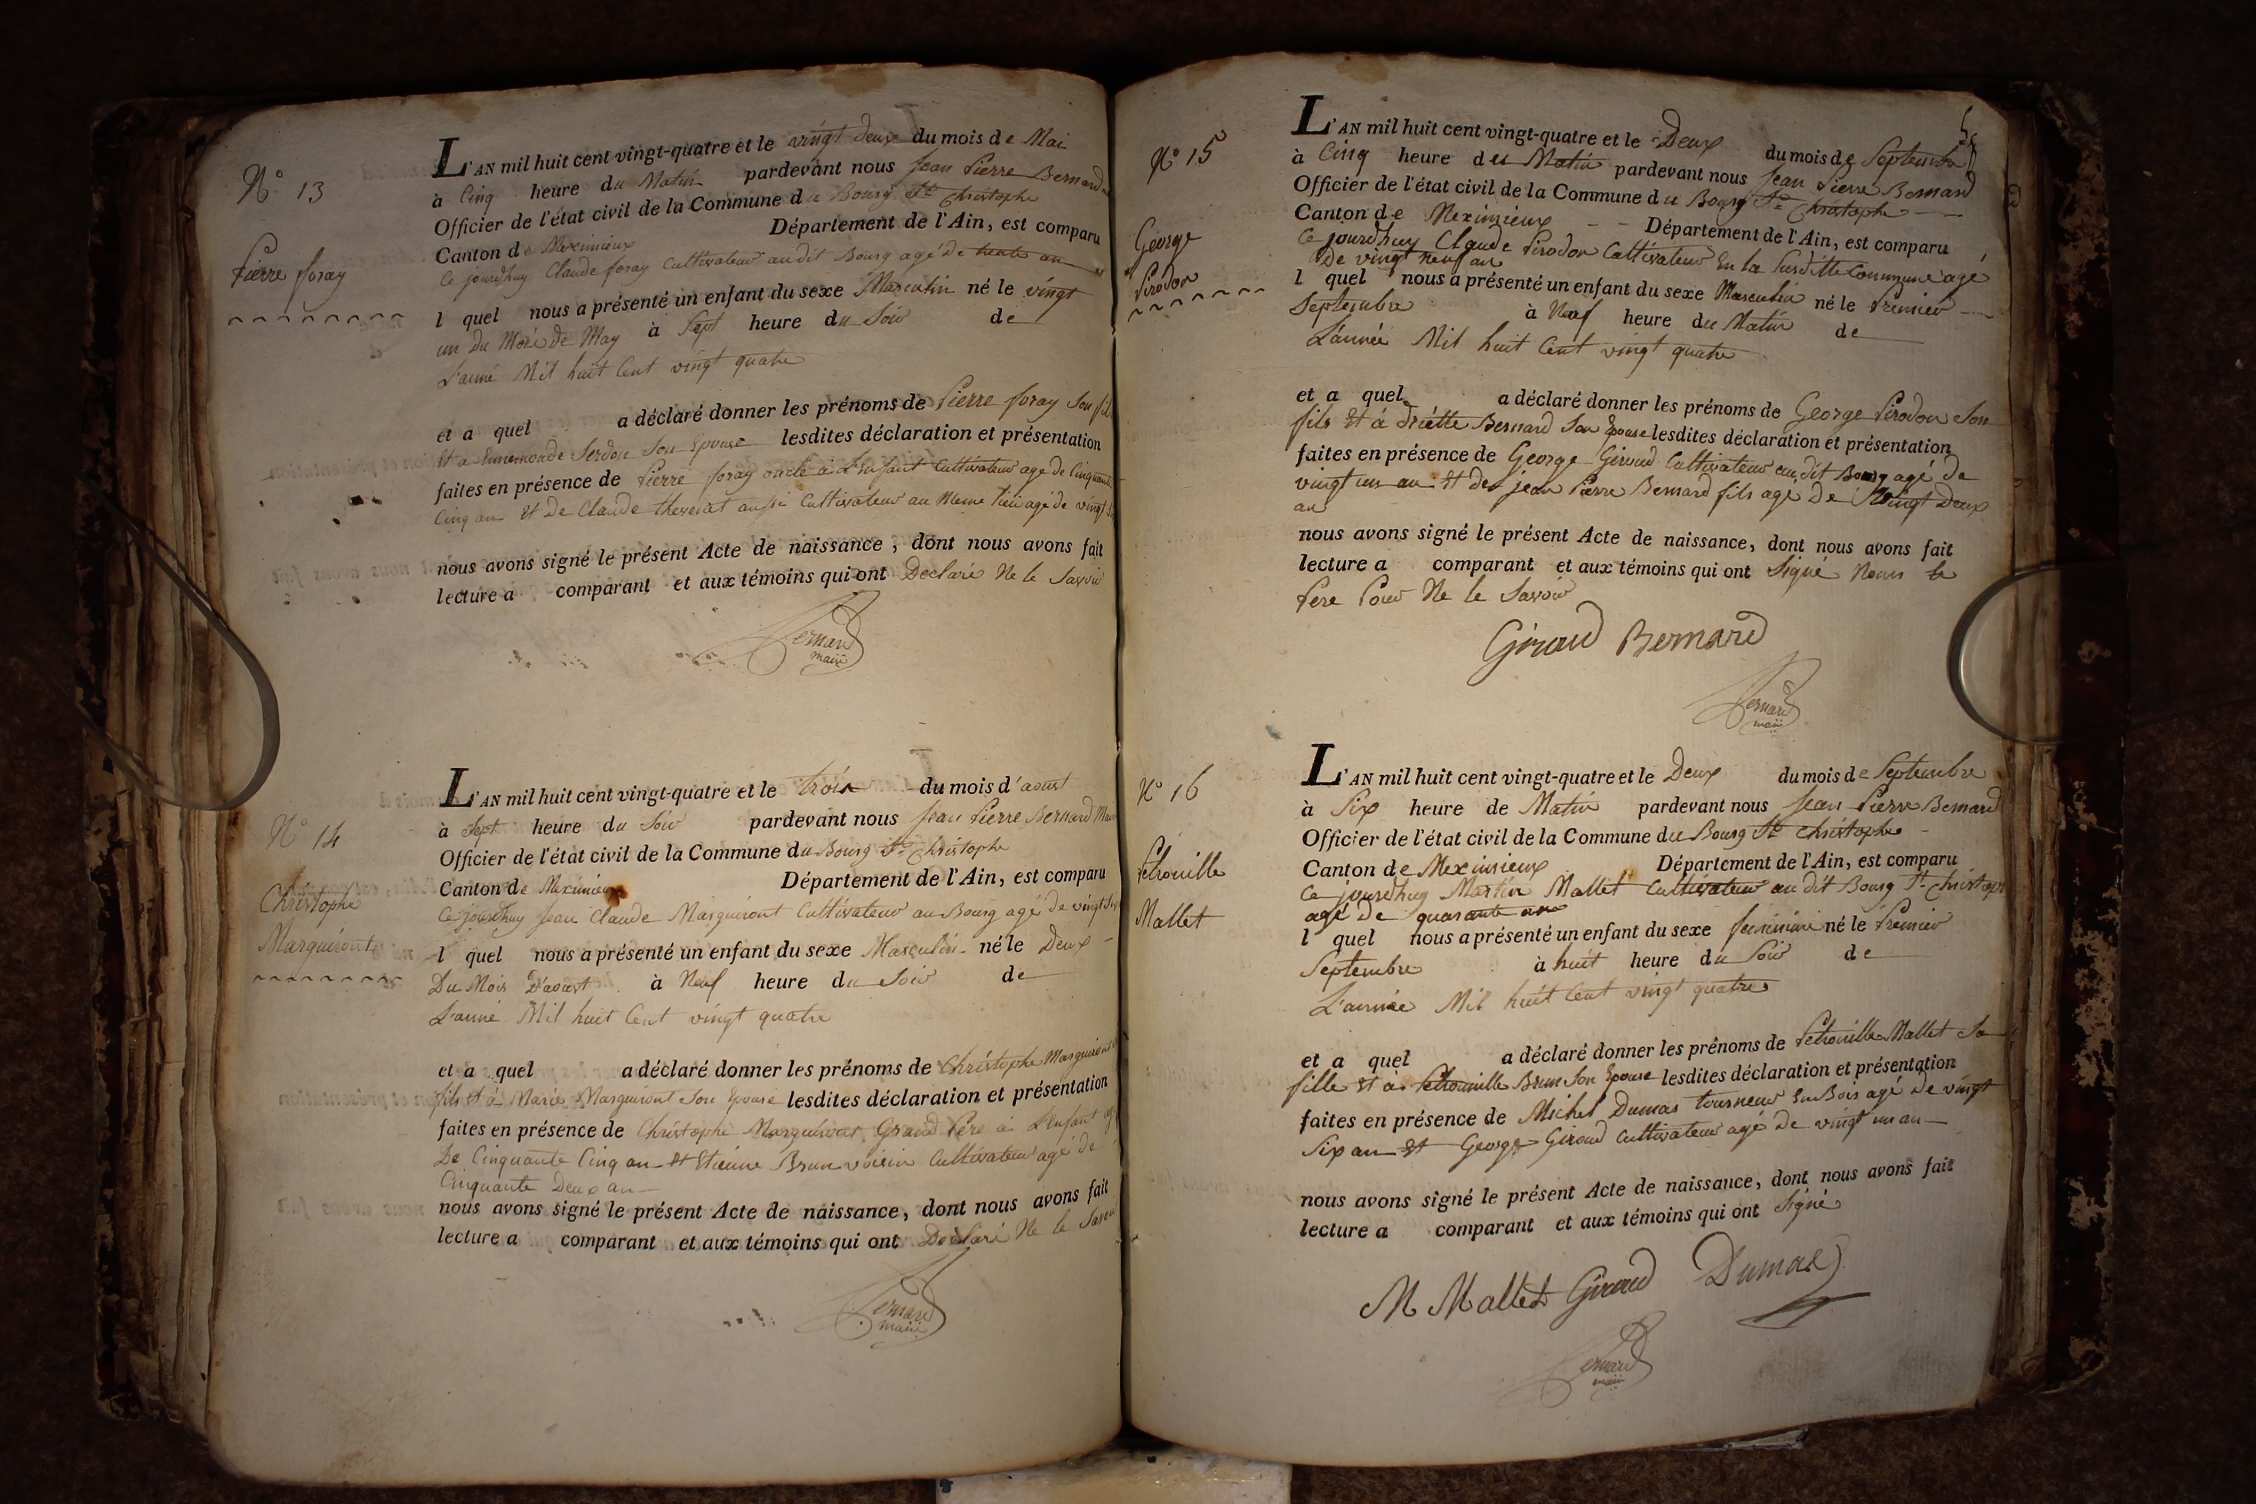 N° 13
Pierre foray
L'AN mil huit cent vingt-quatre et le vingt deux du mois de Mai
à Cinq heure du Matin pardevant nous Jean Pierre Bernard
Officier de l'état civil de la Commune du Bourg St Christophe
Canton de Meximieux Département de l'Ain, est comparu
Ce jourdhuy Claude foray Cultivateur au dit Bourg agé de trente an
l quel nous a présenté un enfant du sexe Masculin né le vingt
un Du Mois De May à Sept heure du Soir de
L'anné Mil huit Cent vingt quatre
et a quel a déclaré donner les prénoms de Pierre foray Son fils
Et a Ennemonde Serdon Son Epouse lesdites déclaration et présentation
faites en présence de Pierre foray oncle à L'Enfant Cultivateur agé de Cinquante
Cinq an Et De Claude thevenat aussi Cultivateur au Meme lieu agé de vingt
nous avons signé le présent Acte de naissance, dont nous avons fait
lecture a comparant et aux témoins qui ont Déclaré Ne le Savoir
Bernard
maire
N° 14
Christophe
Marguiront
L'AN mil huit cent vingt-quatre et le trois du mois d'aoust
à Sept heure du Soir pardevant nous Jean Pierre Bernard Maire
Officier de l'état civil de la Commune du Bourg St Christophe
Canton de Meximieux Département de l'Ain, est comparu
Ce jourdhuy Jean Claude Marguiront Cultivateur au Bourg agé de vingt
l quel nous a présenté un enfant du sexe Masculin né le Deux
Du Mois D'aoust à Neuf heure du Soir de
L'anné Mil huit Cent vingt quatre
et a quel a déclaré donner les prénoms de Christophe Marguiront
fils Et à Marie Marguiront Son Epouse lesdites déclaration et présentation
faites en présence de Christophe Marguiront Grand Pere à L'Enfant
De Cinquante Cinq an Et Etienne Brun voisin Cultivateur agé de
Cinquante Deux an
nous avons signé le présent Acte de naissance, dont nous avons fait
lecture a comparant et aux témoins qui ont Déclaré Ne le Savoir
Bernard
maire
N° 15
George
Pirodon
L'AN mil huit cent vingt-quatre et le Deux du mois de Septembre
à Cinq heure du Matin pardevant nous Jean Pierre Bernard
Officier de l'état civil de la Commune du Bourg St Christophe
Canton de Meximieux Département de l'Ain, est comparu
Ce jourdhuy Claude Pirodon Cultivateur En la Susditte Commune agé
De vingt neuf an
l quel nous a présenté un enfant du sexe Masculin né le Premier
Septembre à Neuf heure du Matin de
L'année Mil huit Cent vingt quatre
et a quel a déclaré donner les prénoms de George Pirodon Son
fils Et à Bernard Son Epouse lesdites déclaration et présentation
faites en présence de George Giroud Cultivateur au dit Bourg agé de
vingt un an Et de jean Pierre Bernard fils agé De Vingt Deux
an
nous avons signé le présent Acte de naissance, dont nous avons fait
lecture a comparant et aux témoins qui ont Signé Nous le
Pere Pour Ne le Savoir
Giroud Bernard
Bernard
maire
N° 16
Petronille
Mallet
L'AN mil huit cent vingt-quatre et le Deux du mois de Septembre
à Six heure de Matin pardevant nous Jean Pierre Bernard
Officier de l'état civil de la Commune du Bourg St Christophe
Canton de Meximieux Département de l'Ain, est comparu
Ce jourdhuy Martin Mallet Cultivateur au dit Bourg St Christophe
agé De quarante an
l quel nous a présenté un enfant du sexe feminine né le Premier
Septembre à huit heure du Soir de
L'année Mil huit Cent vingt quatre
et a quel a déclaré donner les prénoms de Petronille Mallet Sa
fille Et à Petronille Brun Son Epouse lesdites déclaration et présentation
faites en présence de Michel Dumas tourneur En Bois agé De vingt
Six an Et George Giroud Cultivateur agé De vingt un an
nous avons signé le présent Acte de naissance, dont nous avons fait
lecture a comparant et aux témoins qui ont Signé
M Mallet Giroud Dumas
Bernard
maire